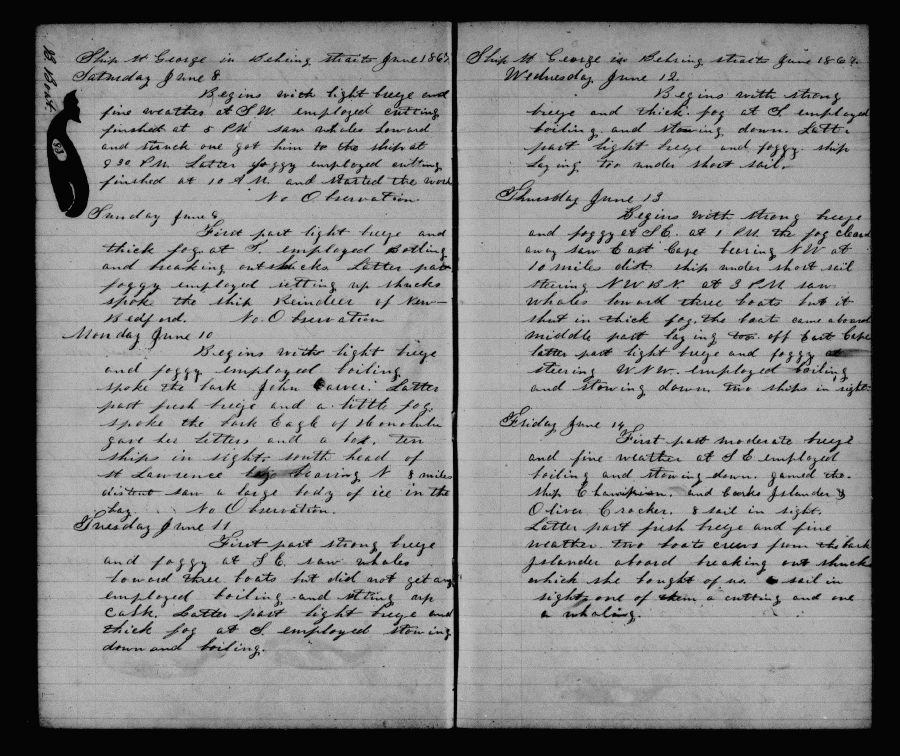 B. Boat
83
Ship St George in Behring straits June 1867
Saturday June 8
Begins with light breeze and
fine weather at S.W. employed cutting
finished at 5 PM saw whales lowered
and struck one got him to the ship at
9 30 P.M. Latter foggy employed cutting
finished at 10 A.M. and started the work
No Observation
Sunday June
First part light breeze and
thick fog at S. employed Boiling
and breaking out Latter part
foggy employed setting up shucks
spoke the ship Reindeer of New-
Bedford. No Observation
Monday June 10
Begins with light breeze
and foggy employed boiling
spoke the bark John Carver. Latter
part fresh breeze and a little fog
spoke the bark Eagle of Honolulu
gave her Letters and a box, ten
ships in sight. south head of
St Lawrence bearing N 8 miles
distant saw a large body of ice in the
bay No Observation.
Tuesday June 11
First part strong breeze
and foggy at S.E. saw whales
loward three boats but did not get any
employed boiling and setting up
Cask. Latter part light breeze and
thick fog at S. employed stowing
down and boiling.
Ship St George in Behring straits June 1867.
Wednesday June 12
Begins with strong
breeze and thick fog at S employed
boiling and stowing down. Latter
part light breeze and foggy ship
laying too under short sail.
Thursday June 13
Begins with strong breeze
and foggy at S.E. at 1 P.M. the fog cleard
away saw East Cape bearing N W at
10 miles dist ship under short sail
steering N W B N. at 3 P.M saw
whales loward three boats but it
shut in thick fog. the boats came aboard
middle part laying too off East Cape
latter part light breeze and foggy at
steering W N W. employed boiling
and stowing down. two ships in sight
Friday June 14
First part moderate breeze
and fine weather at S E employed
boiling and stowing down. gamed the
ship Champion. and barks Islander &
Oliver Crocker. 8 sail in sight.
Latter part fresh breeze and fine
weather two boats crews from the bark
Islander aboard breaking out shucks
which she bought of us. sail in
sight one of them a cutting and one
a whaling.